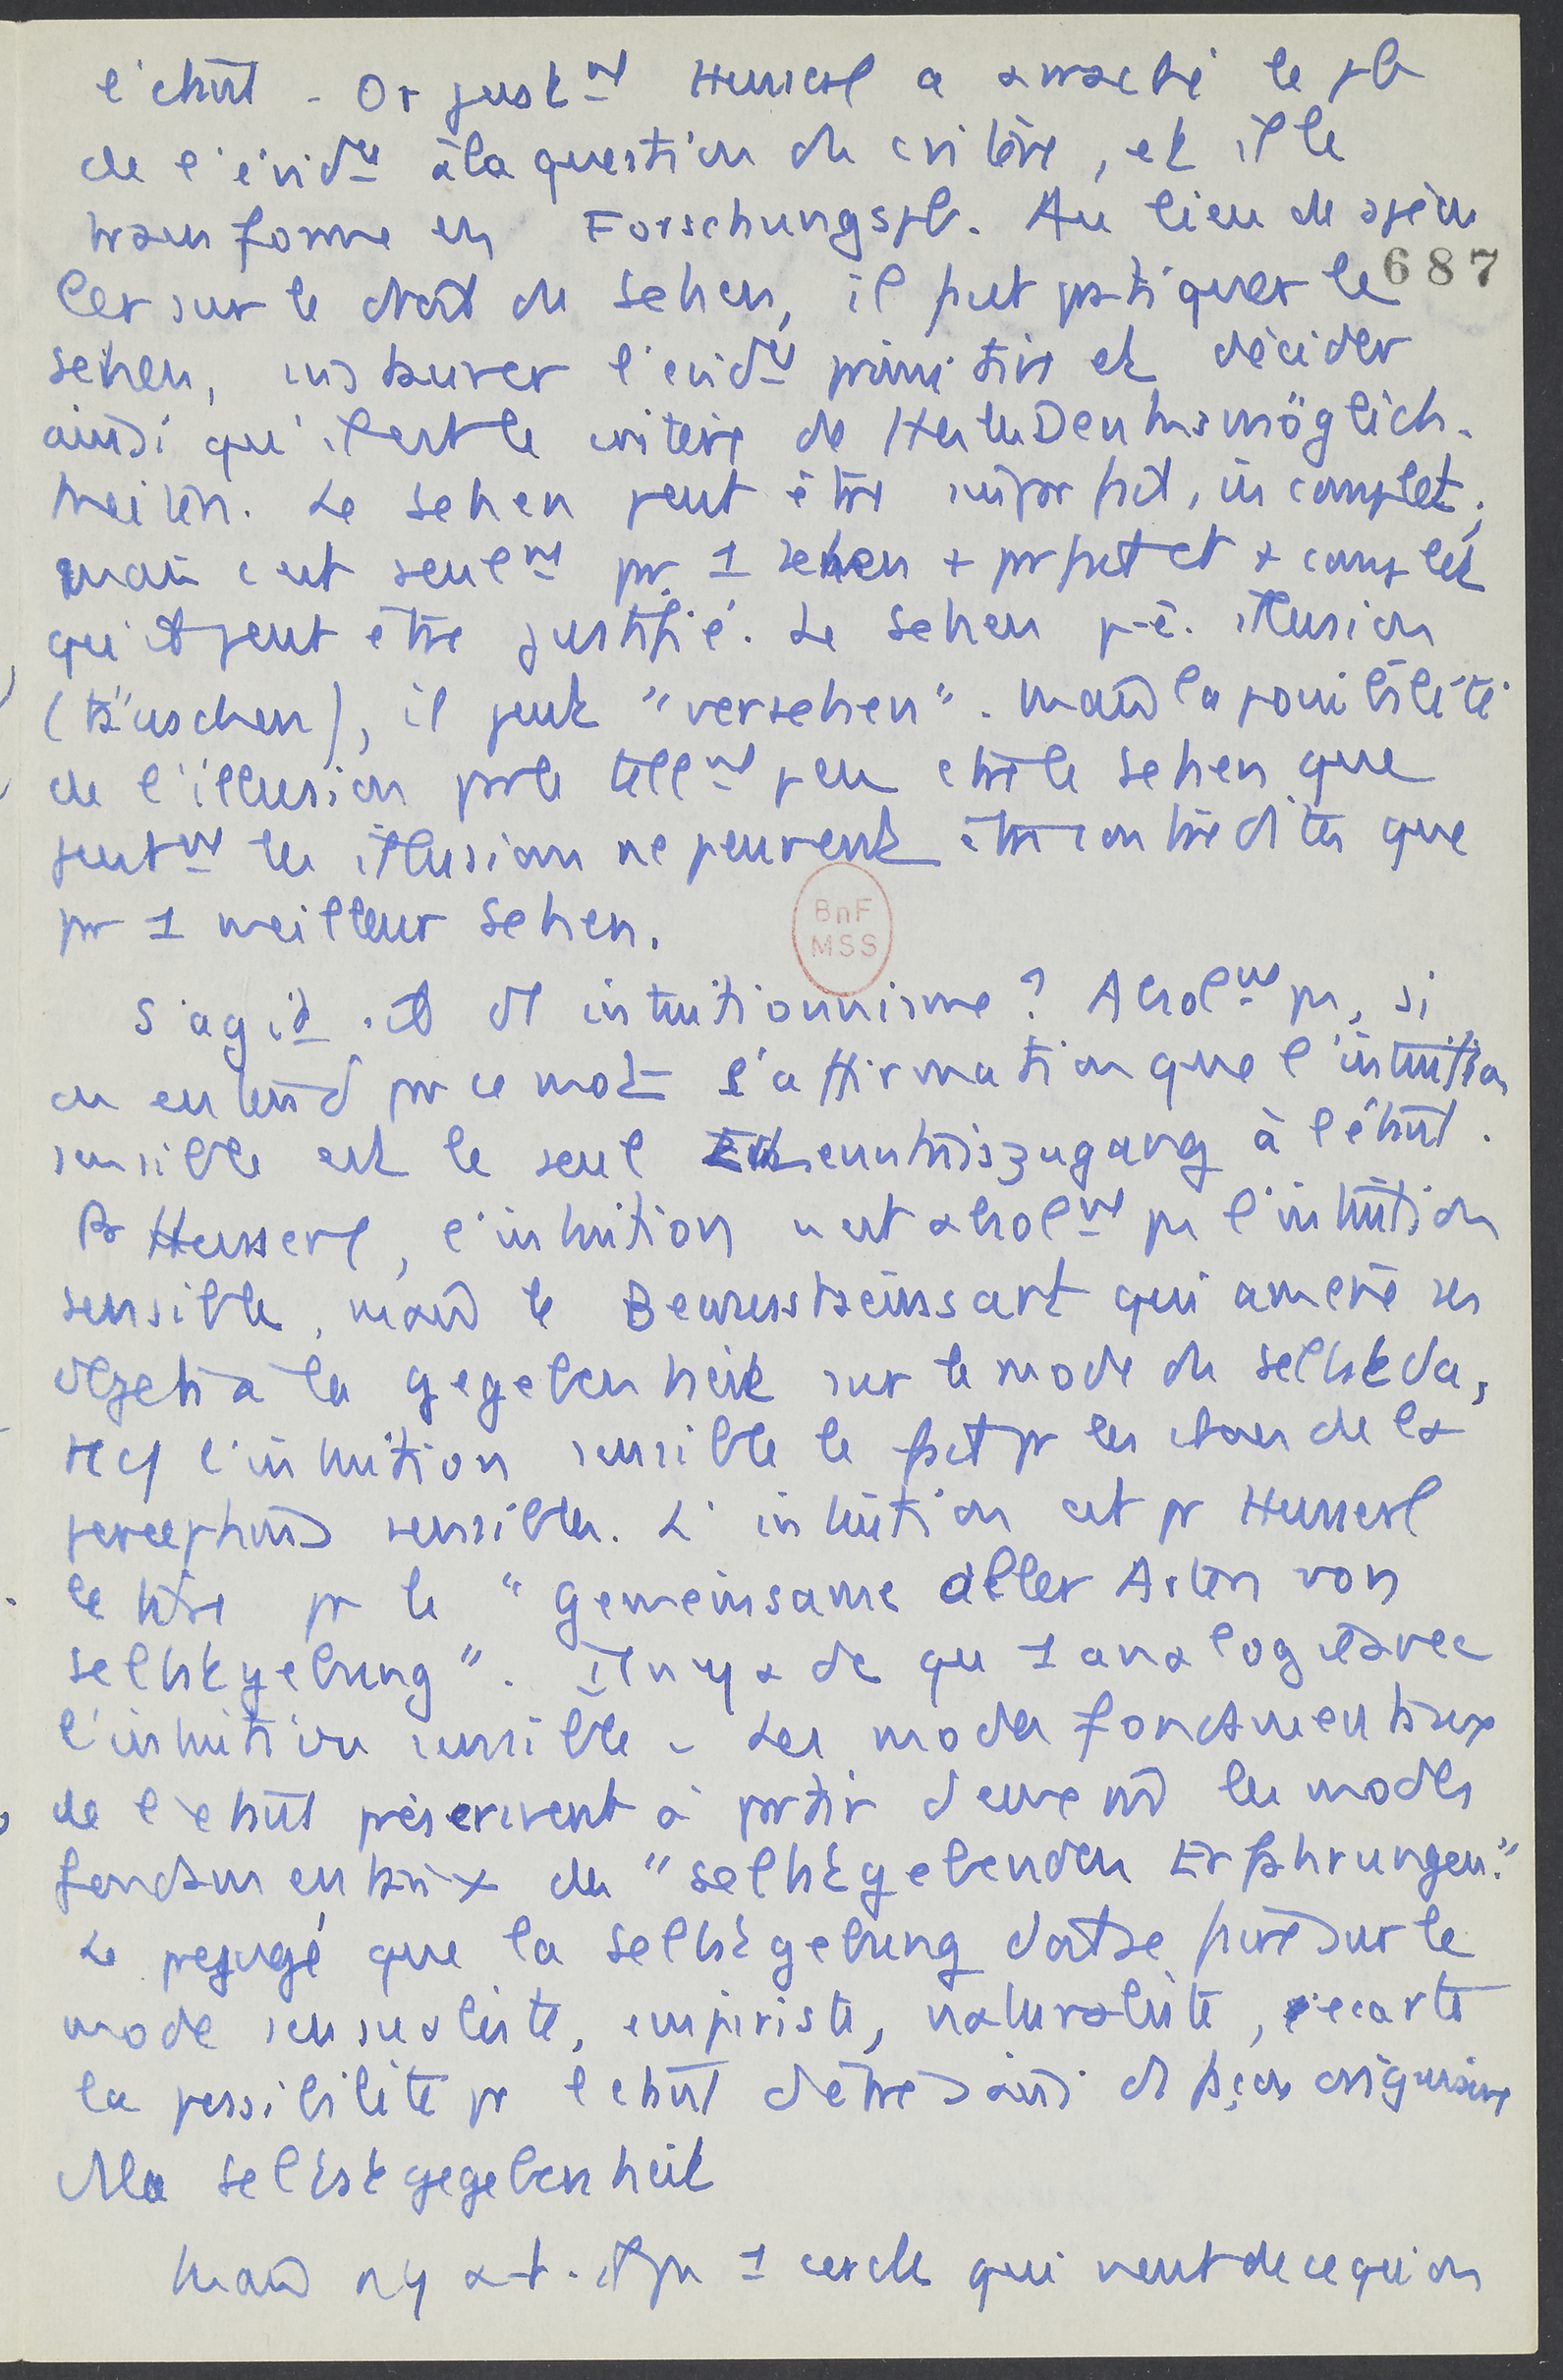 l'étant. Or just^nt Husserl a arraché le pb
de l'évid^ce à la question du critère, et il le
transforme en Forschungspb. Au lieu de spécu
ler sur le droit du Sehen, il faut pratiquer le
687
sehen, instaurer l'evid^ce primitive et décider
ainsi qu'il est le critère de
keiten. Le sehen peut être imparfait, incomplet;
mais c'est seul^nt par 1 sehen + parfait et + complet
qu'il peut être justifié. Le Sehen p-ê. illusion
(täuschen), il peut "versehen". Mais la possibilité
de l'illusion parle tell^nt peu ctre le sehen que
seul^nt les illusions ne peuvent être contredites que
par 1 meilleur Sehen.
BnF
MSS
S'agit-il d'intuitionnisme? Absol^nt pas, si
on entend par ce mot l'affirmation que l'intuition
sensible est le seul Erkenntniszugang à l'étant.
Pr Husserl, l'intuition n'est absol^nt pas l'intuition
sensible, mais le Bewusstseinsart qui amène ses
objets à la gegebenheit sur le mode du selbst da,
cf l'intuition sensible le fait pr les choses de la
perception sensible. L'intuition est pr Husserl
le titre pr le "gemeinsame aller Arten von
selbstgebung". Il n'y a dc qu'1 analogie avec
l'intuition sensible. Les modes fondamentaux
de l'étant prescrivent à partir d'eux-m̂ les modes
fondamentaux des "selbstgebenden Erfahrungen."
Le préjugé que la selbstgebung doit se faire sur le
mode sensualiste, empiriste, naturaliste, écarte
la possibilité pr l'étant d'être saisi de façon originaire
ds la selbstgegebenheit
Mais n'y a-t-il pas 1 cercle qui vient de ce qu'on